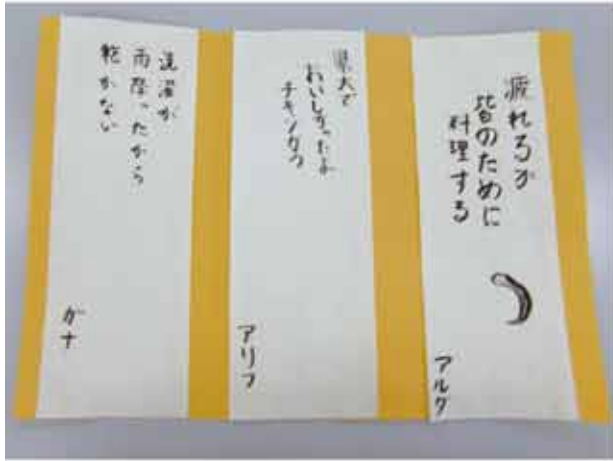 疲れるが
皆のために
料理する
アルダ
県大で
おいしかったよ
チキンカツ
アリフ
洗濯が
雨降ったから
乾かない
ガナ